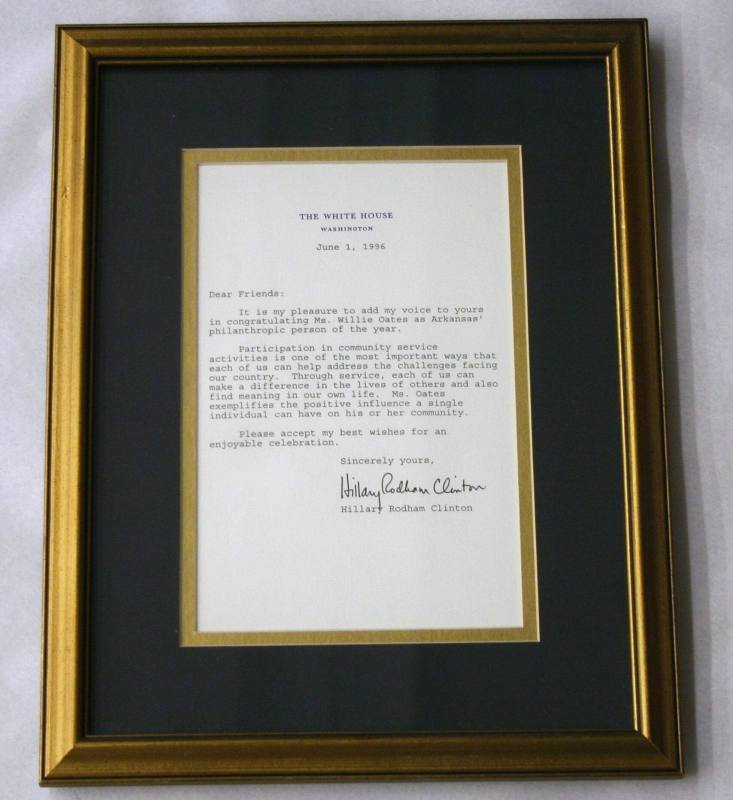 THE WHITE HOUSE
WASHINGTON
June 1, 1996
Dear Friends:
It is my pleasure to add my voice to yours
in congratulating Ms. Willie Oates as Arkansas'
philanthropic person of the year.
Participation in community service
activities is one of the most important ways that
each of us can help address the challenges facing
our country.  Through service, each of us can
make a difference in the lives of others and also
find meaning in our own life.  Ms. Oates
exemplifies the positive influence a single
individual can have on his or her community.
Please accept my best wishes for an
enjoyable celebration.
Sincerely yours,
Hillary Rodham Clinton
Hillary Rodham Clinton